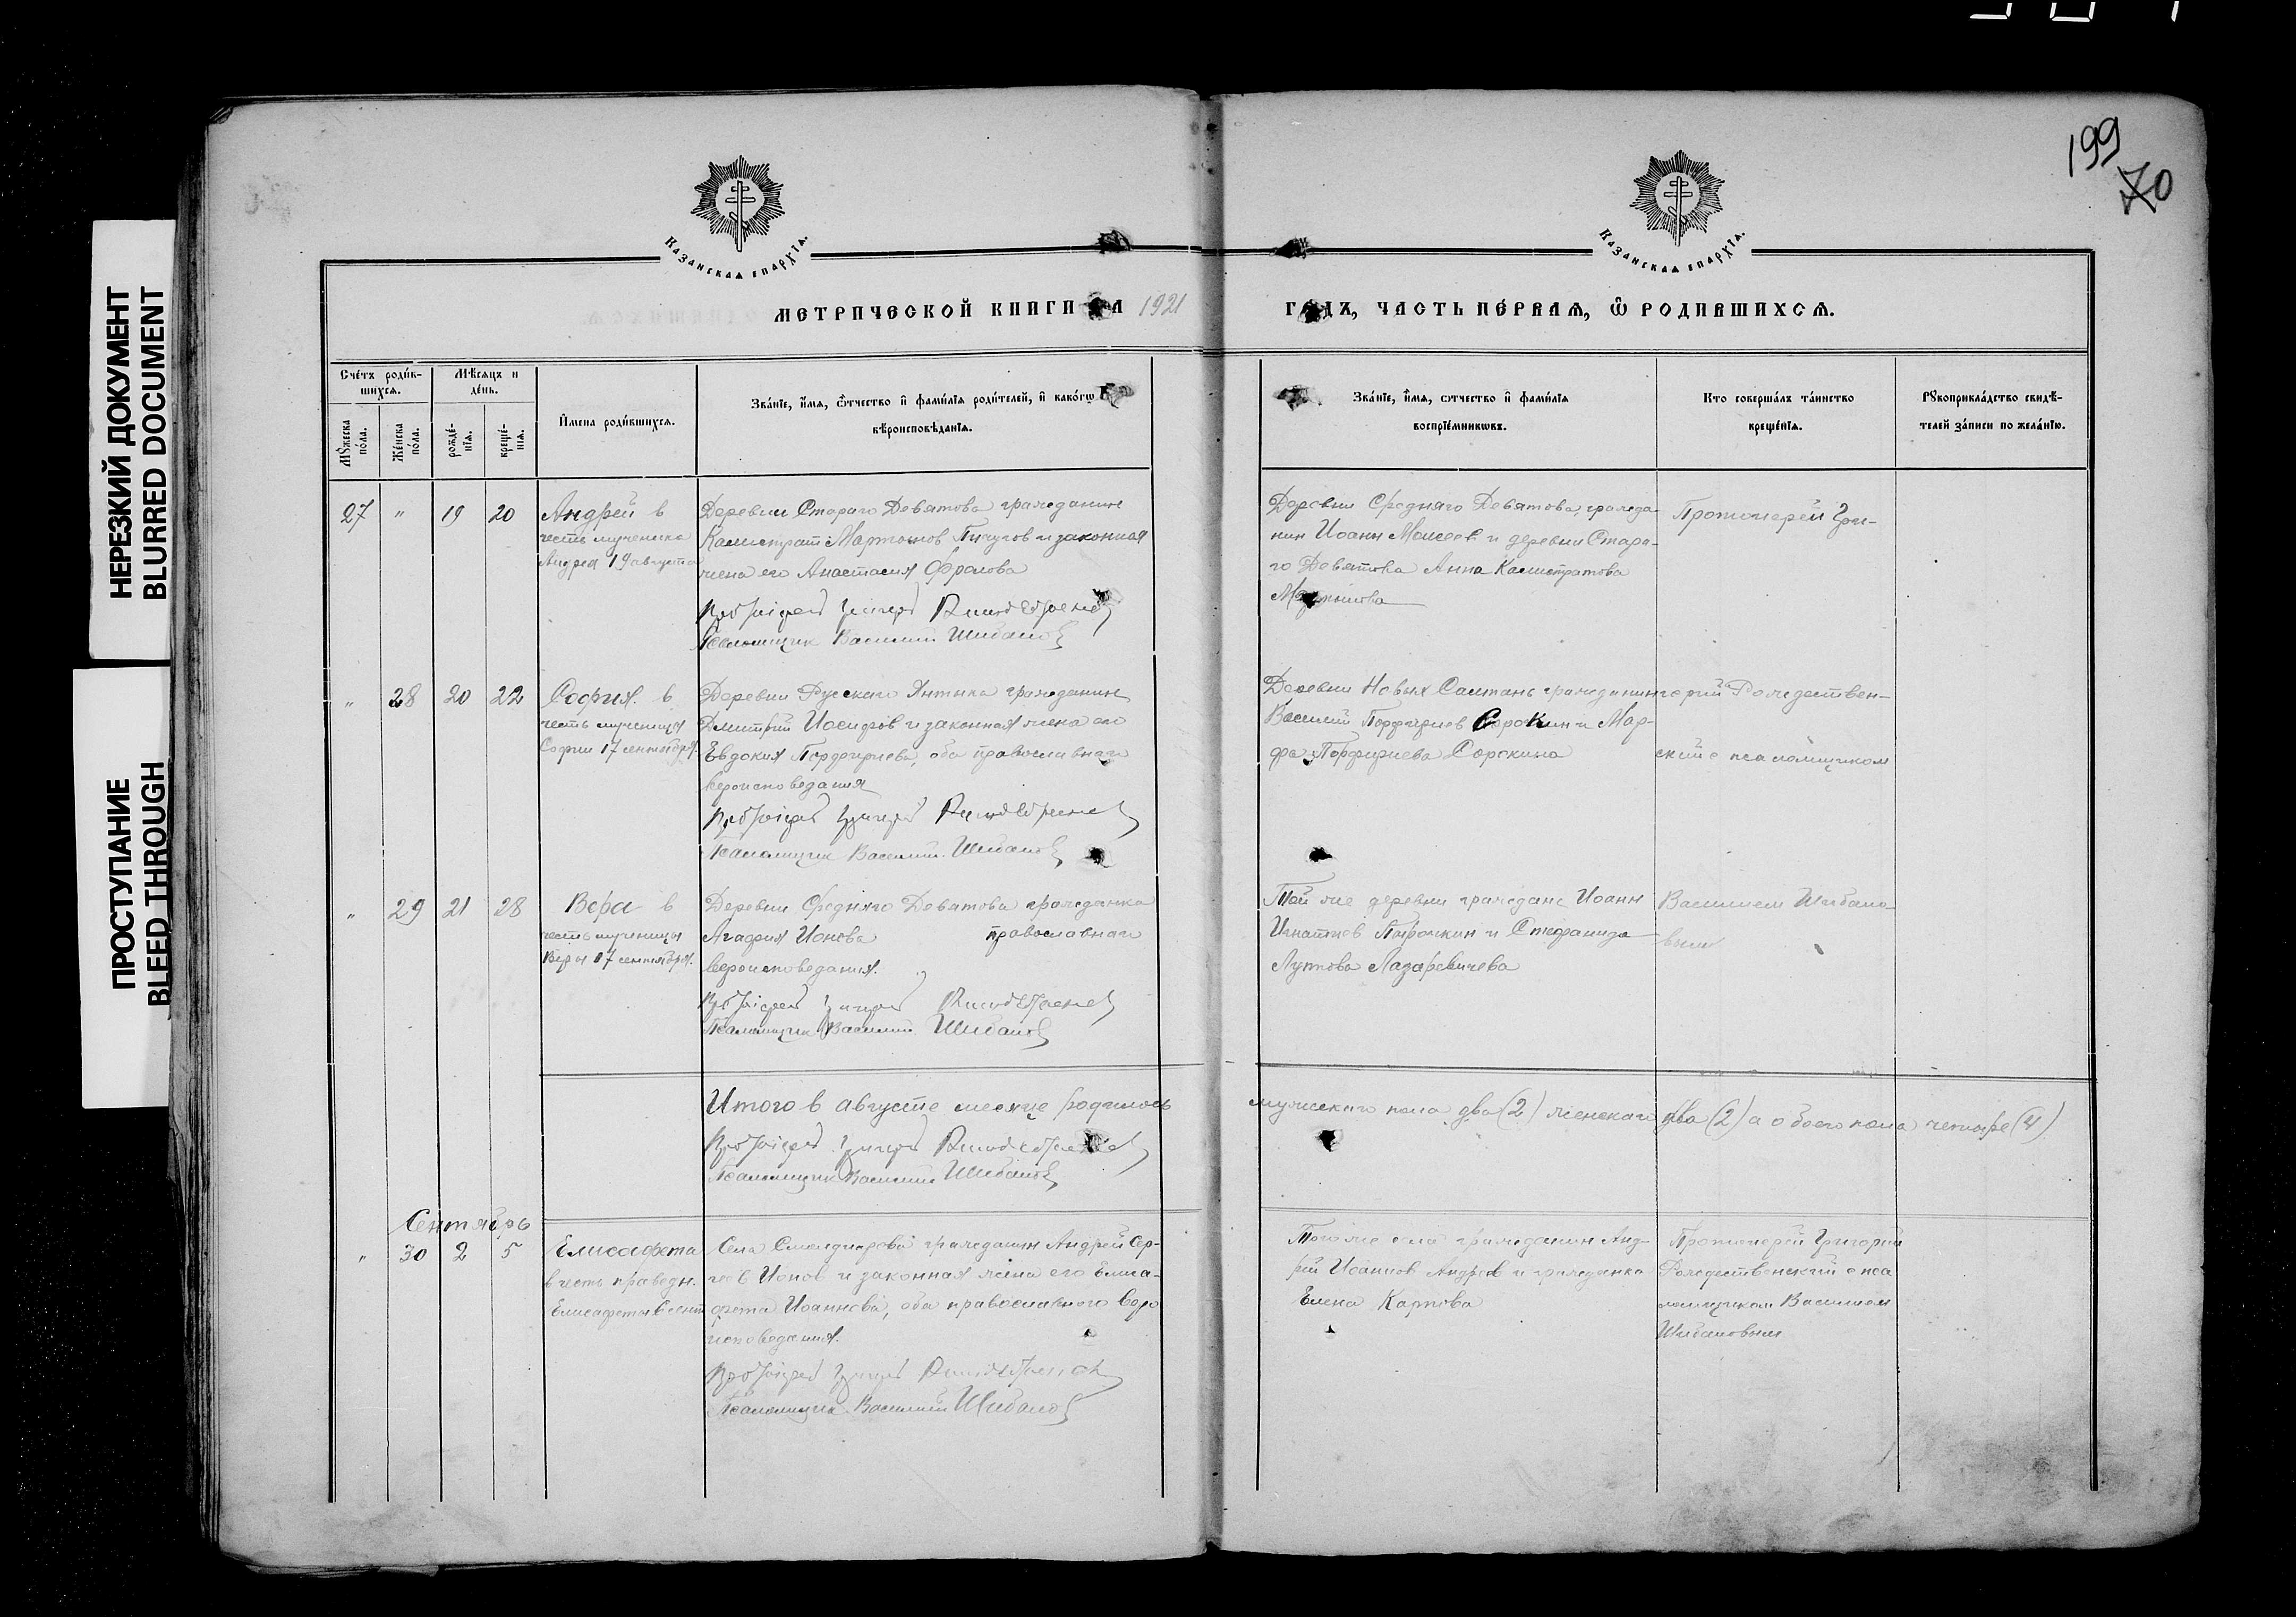 199
70
НЕРЕЗКИЙ ДОКУМЕНТ
BLURRED DOCUMENT
ПРОСТУПАНИЕ
BLEED THROUGH
Казанская епархія.
Казанская епархія.
МЕТРИЧЕСКОЙ КНИГИ НА 1921
ГОДЪ, ЧАСТЬ ПЕ́РВАЯ, Ѡ РОДИВШИХСЯ.
Сче́тъ роди́в-
шихся.
Мѣсяцъ и
де́нь.
Мꙋ́жеска
по́ла.
Же́нска
по́ла.
рожде́-
нїя.
креще́-
нїя.
И҆мена роди́вшихся.
Зва́нїе, и҆́мя, ѻ҆́тчество и҆ фами́лїя роди́телей, и҆ како́гѡ
вѣроисповѣ́данїя.
Зва́нїе, и҆́мя, ѻ҆тчество и҆ фами́лїя
воспрїе́мниковъ.
Кто соверша́лъ та́инство
креще́нїя.
Рꙋкоприкла́дство свидѣ́-
телей за́писи по жела́нїю.
27 " 19 20
Андрей в
честь мученика
Андрея 19 августа
Деревни Стараго Девятова гражданин
Калистрат Мартынов Пичугов и законная
жена его Анастасия Фролова
Протоіерей Григорій Рождественскій
Псаломщик Василий Шибанов
Деревни Средняго Девятова, гражда-
нин Иоанн Моисеев и деревни Стара-
го Девятова Анна Калистратова
Мартынова
Протоиерей Гри-
" 28 20 22
София. в
честь мученицы
Софии 17 сентября.
Деревни Русскаго Янтыка гражданин
Дмитрий Иосифов и законная жена его
Евдокия Порфирьева, оба православнаго
вероисповедания
Протоіерей Григорій Рождественскій
Псаломщик Василий Шибанов
Деревни Новых Салман гражданин
Василий Порфирьев Сорокин и Мар-
фа Порфирьева Сорокина
горий Рождествен-
ский с псаломщиком
" 29 21 28
Вера в
честь мученицы
Веры 17 сентября.
Деревни Средняго Девятова гражданка
Агафия Ионова православнаго
вероисповедания.
Протоіерей Григорій Рождественскій
Псаломщик Василий Шибанов
Той же деревни граждане Иоанн
Игнатиев и Стефанида
Лазаревичева
Василием Шибано-
вым
Итого в августе месяце родилось
мужескаго пола два (2) женскаго два (2) а обоего пола четыре (4)
Протоіерей Григорій Рождественскій
Псаломщик Василий Шибанов
Сентябрь
" 30 2 5
Елисавета
в честь праведн.
Елисаветы 5 сент
Села гражданин Андрей Сер-
геев Ионов и законная жена его Елиса-
вета Иоаннова, оба православного веро
исповедания.
Протоіерей Григорій Рождественскій
Псаломщик Василий Шибанов
Того же села гражданин Анд-
рей Иоаннов Андреев и гражданка
Елена Карпова
Протоиерей Григорий
Рождественский с пса
ломщиком Василием
Шибановым